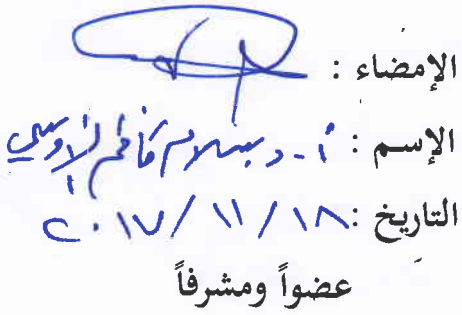 الإمضاء :
الإسم : أ.د. سلام كاظم الاوسي
التاريخ : ٢٠١٧/١١/١٨
عضواً ومشرفاً